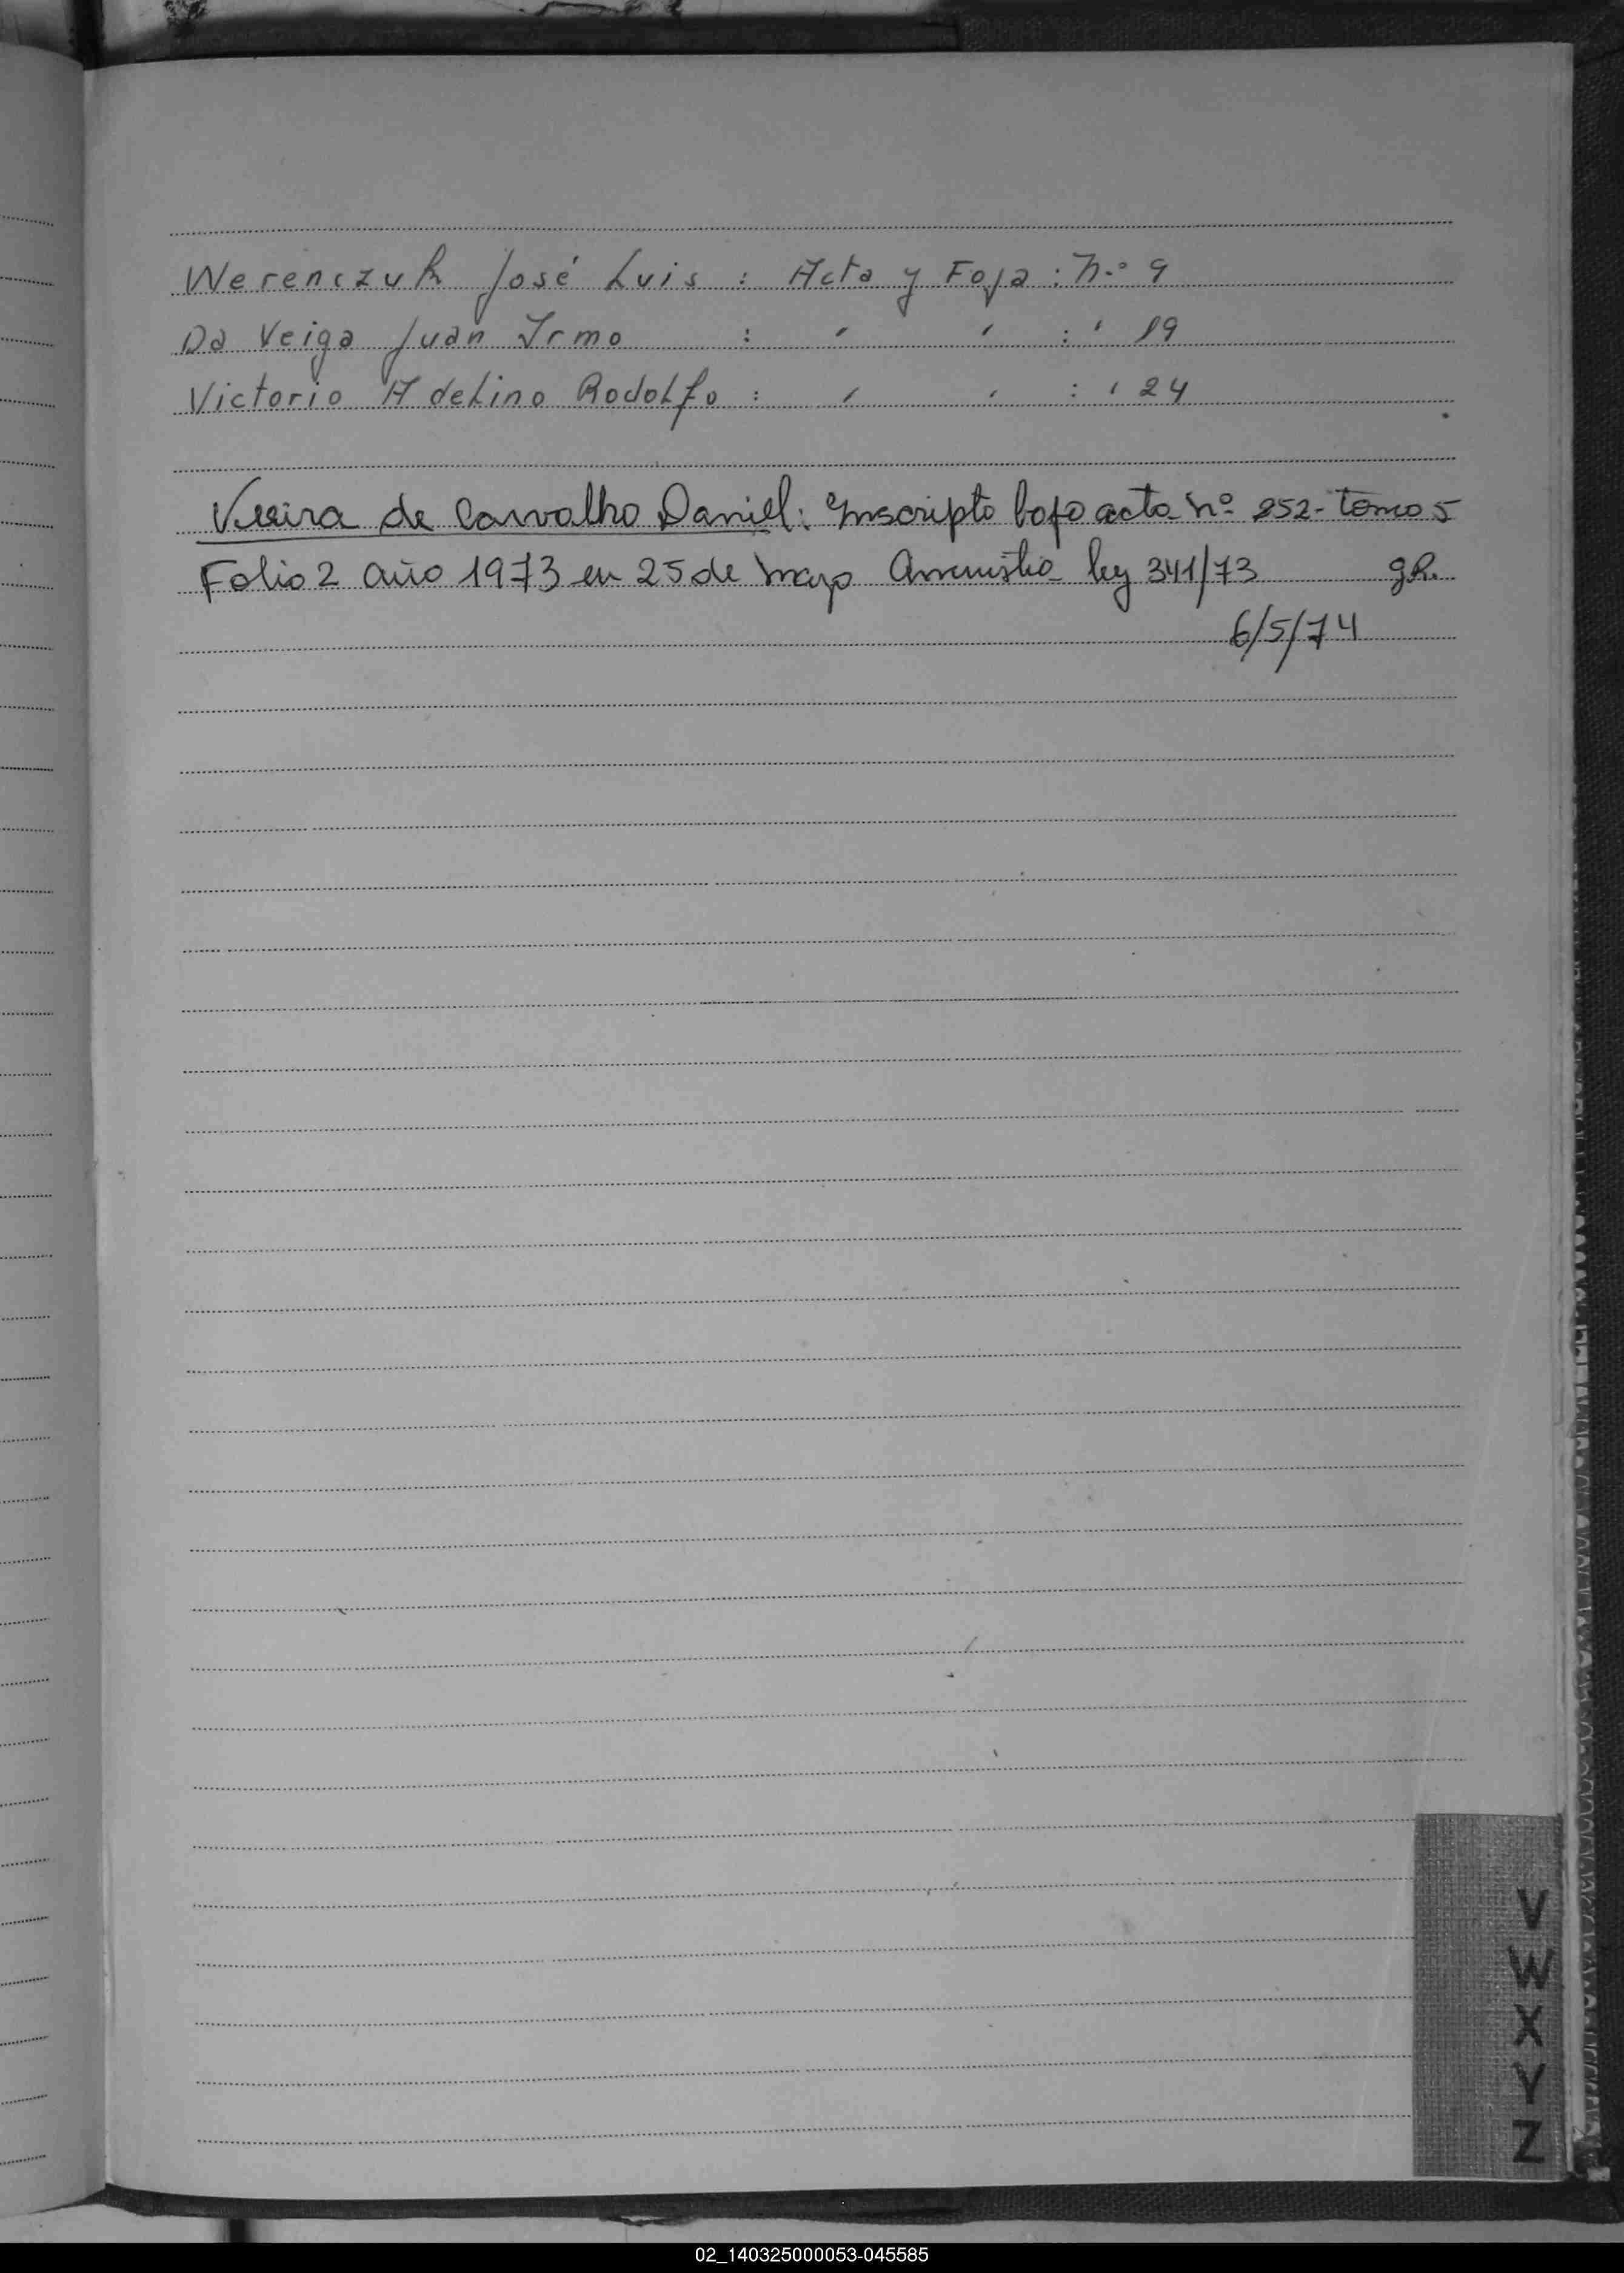 Werenczuk José Luis : Acta y Foja : N.º 9
Da Veiga Juan Irmo : " " : " 19
Victorio Adelino Rodolfo : " " : " 24
Vieira de Carvalho Daniel: Inscripto bajo acta nº 252- tomo 5
Folio 2 año 1973 en 25 de mayo Amnistia ley 341/73 g.R.
6/5/74
V
W
X
Y
Z
02_140325000053-045585